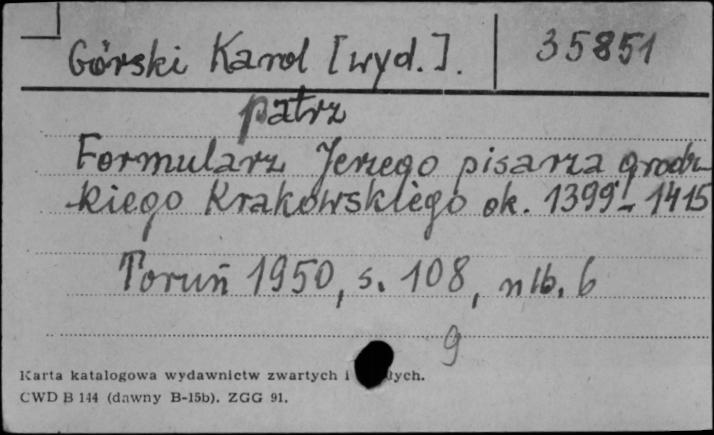 Górski Karol [wyd.]. 35851
patrz
Formularz Jerzego pisarza grodz-
kiego Krakowskiego ok. 1399-1415
Toruń 1950, s. 108, nlb. 6
9
Karta katalogowa wydawnictw zwartych i
CWD B 144 (dawny B-15b). ZGG 91.